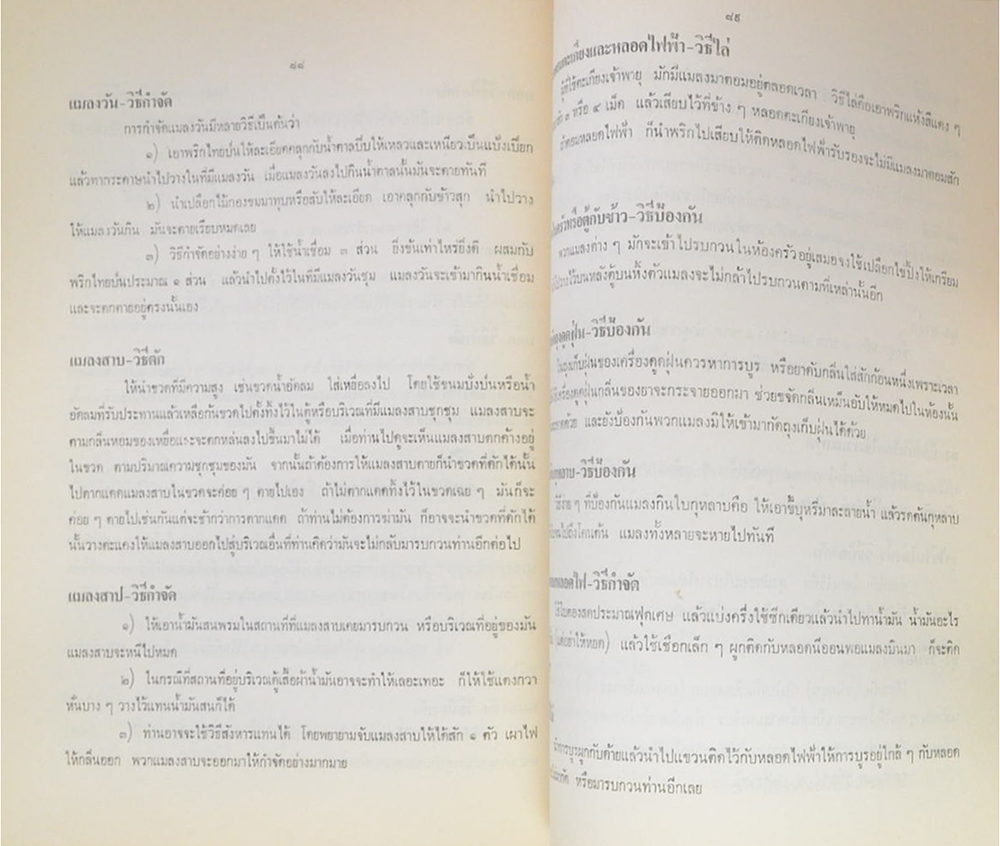 ๘๘
แมลงวัน-วิธีกำจัด
การกำจัดแมลงวันมีหลายวิธีเป็นต้นว่า
๑) เอาพริกไทยป่นให้ละเอียดคลุกกับน้ำตาลปี๊บให้เหลวและเหนียวเป็นแป้งเปียก
แล้วทากระดาษนำไปวางในที่มีแมลงวัน เมื่อแมลงวันลงไปกินน้ำตาลนั้นมันจะตายทันที
๒) นำเปลือกไม้กองขมมาทุบหรือสับให้ละเอียด เอาคลุกกับข้าวสุก นำไปวาง
ให้แมลงวันกิน มันจะตายเรียบหมดเลย
๓) วิธีกำจัดอย่างง่าย ๆ ให้ใช้น้ำเชื่อม ๓ ส่วน ยิ่งข้นเท่าไหร่ยิ่งดี ผสมกับ
พริกไทยป่นประมาณ ๑ ส่วน แล้วนำไปตั้งไว้ในที่มีแมลงวันชุม แมลงวันจะเข้ามากินน้ำเชื่อม
และจะตกตายอยู่ตรงนั้นเอง
แมลงสาบ-วิธีดัก
ให้นำขวดที่มีความสูง เช่นขวดน้ำอัดลม ใส่เหยื่อลงไป โดยใช้ขนมปังป่นหรือน้ำ
อัดลมที่รับประทานแล้วเหลือก้นขวดไปตั้งทิ้งไว้ในตู้หรือบริเวณที่มีแมลงสาบชุกชุม แมลงสาบจะ
ตามกลิ่นหอมของเหยื่อและจะตกหล่นลงไปขึ้นมาไม่ได้ เมื่อท่านไปดูจะเห็นแมลงสาบตกค้างอยู่
ในขวด ตามปริมาณความชุกชุมของมัน จากนั้นถ้าต้องการให้แมลงสาบตายก็นำขวดที่ดักได้นั้น
ไปตากแดดแมลงสาบในขวดจะค่อย ๆ ตายไปเอง ถ้าไม่ตากแดดทิ้งไว้ในขวดเฉย ๆ มันก็จะ
ค่อย ๆ ตายไปเช่นกันแต่จะช้ากว่าการตากแดด ถ้าท่านไม่ต้องการฆ่ามัน ก็อาจจะนำขวดที่ดักได้
นั้นวางตะแคงให้แมลงสาบออกไปสู่บริเวณอื่นที่ท่านคิดว่ามันจะไม่กลับมารบกวนท่านอีกต่อไป
แมลงสาป-วิธีกำจัด
๑) ให้เอาน้ำมันสนพรมในสถานที่ที่แมลงสาบเคยมารบกวน หรือบริเวณที่อยู่ของมัน
แมลงสาบจะหนีไปหมด
๒) ในกรณีที่สถานที่อยู่บริเวณตู้เสื้อผ้าน้ำมันอาจจะทำให้เลอะเทอะ ก็ให้ใช้แตงกวา
หั่นบาง ๆ วางไว้แทนน้ำมันสนก็ได้
๓) ท่านอาจจะใช้วิธีสังหารแทนได้ โดยพยายามจับแมลงสาบให้ได้สัก ๑ ตัว เผาไฟ
ให้กลิ่นออก พวกแมลงสาบจะออกมาให้กำจัดอย่างมากมาย
๘๙
ตะเกียงและหลอดไฟฟ้า-วิธีไล่
ผู้ที่ใช้ตะเกียงเจ้าพายุ มักมีแมลงมาตอมอยู่ตลอดเวลา วิธีไล่คือเอาพริกแห้งสีแดง ๆ
๓ หรือ ๔ เม็ด แล้วเสียบไว้ที่ข้าง ๆ หลอดตะเกียงเจ้าพายุ
ตอมหลอดไฟฟ้า ก็นำพริกไปเสียบให้ติดหลอดไฟฟ้ารับรองจะไม่มีแมลงมาตอมสัก
หรือตู้กับข้าว-วิธีป้องกัน
พวกแมลงต่าง ๆ มักจะเข้าไปรบกวนในห้องครัวอยู่เสมอจงใช้เปลือกไข่ปิ้งให้เกรียม
ไว้บนหลังตู้บนหิ้งตัวแมลงจะไม่กล้าไปรบกวนตามที่เหล่านั้นอีก
ดูดฝุ่น-วิธีป้องกัน
ในถุงเก็บฝุ่นของเครื่องดูดฝุ่นควรหาการบูร หรือยาดับกลิ่นใส่สักก้อนหนึ่งเพราะเวลา
เครื่องดูดฝุ่นกลิ่นของยาจะกระจายออกมา ช่วยขจัดกลิ่นเหม็นอับให้หมดไปในห้องนั้น
ด้วย และยังป้องกันพวกแมลงมิให้เข้ามากัดถุงเก็บฝุ่นได้ด้วย
กุหลาบ-วิธีป้องกัน
วิธีง่าย ๆ ที่ป้องกันแมลงกินใบกุหลาบคือ ให้เอาขี้บุหรี่มาละลายน้ำ แล้วรดต้นกุหลาบ
ไปถึงโคนต้น แมลงทั้งหลายจะหายไปทันที
หลอดไฟ-วิธีกำจัด
ใช้ใบตองสดประมาณฟุตเศษ แล้วแบ่งครึ่งใช้ซีกเดียวแล้วนำไปทาน้ำมัน น้ำมันอะไร
(แต่อย่าให้หยด) แล้วใช้เชือกเล็ก ๆ ผูกติดกับหลอดนีออนพอแมลงบินมา ก็จะติด
การบูรผูกกับด้ายแล้วนำไปแขวนติดไว้กับหลอดไฟฟ้าให้การบูรอยู่ใกล้ ๆ กับหลอด
หรือมารบกวนท่านอีกเลย